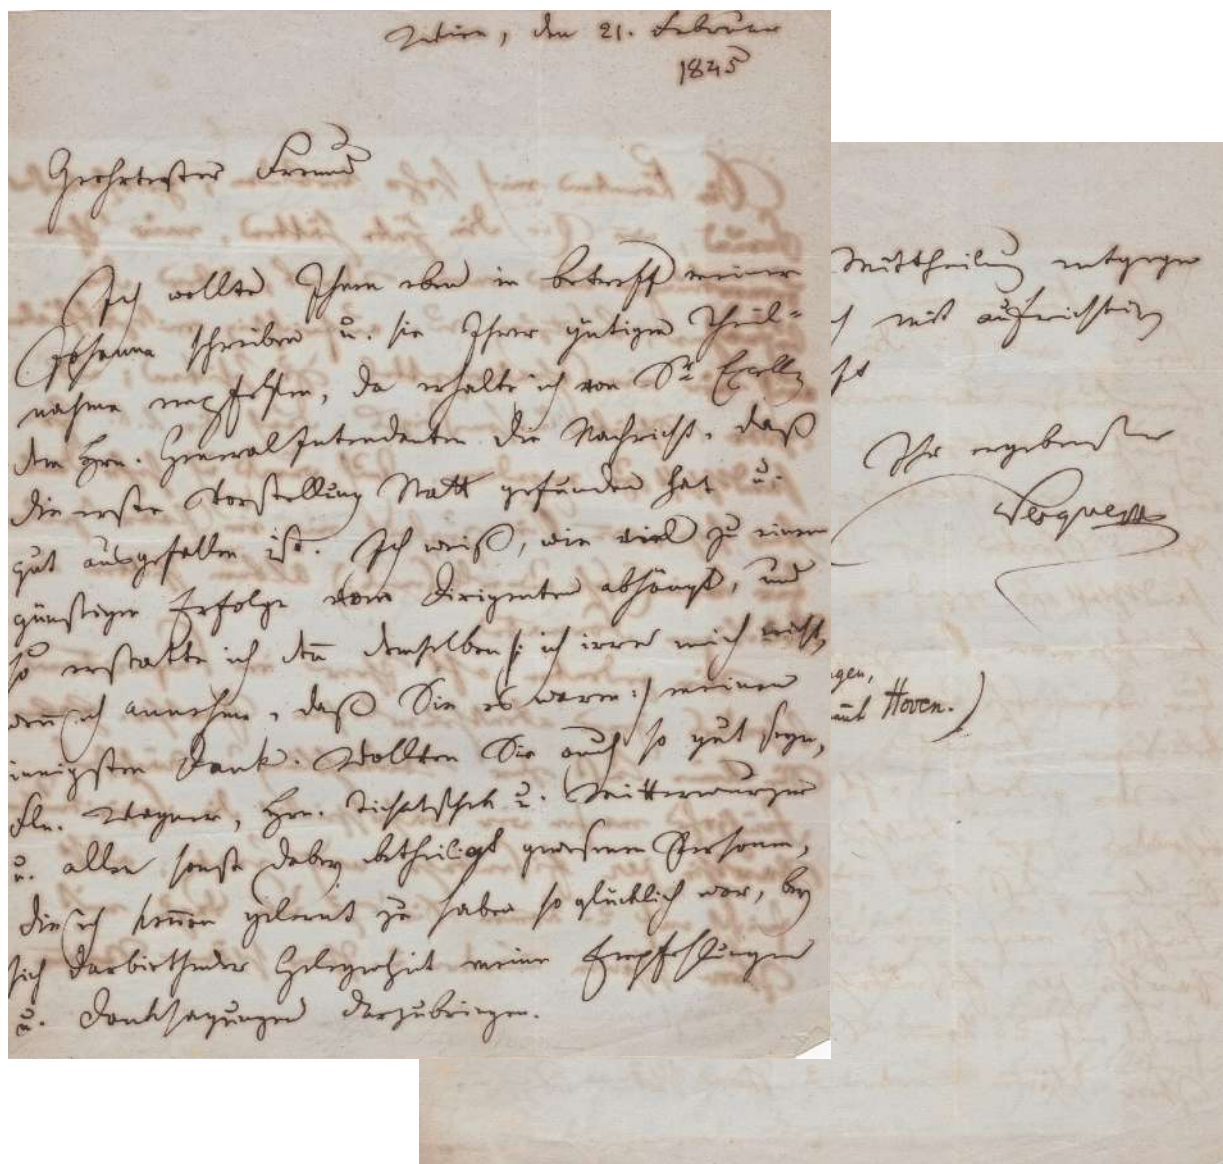 Wien, den 21. Februar
1845
Geehrtester Freund
Ich wollte Ihnen eben in betreff meiner
Johanna schreiben u. sie Ihrer gütigen Theil-
nahme empfehlen, da erhalte ich von Sr Excellz
dem Hrn. General Intendanten die Nachricht, daß
die erste Vorstellung Statt gefunden hat u.
gut ausgefallen ist. Ich weiß, wie viel zu einem
günstigen Erfolge vom Dirigenten abhängt, und
so erstatte ich den demselben /: ich irre mich nicht,
wenn ich annehme, daß Sie es waren :/ meinen
innigsten Dank. Wollten Sie auch so gut seyn,
Fln. Wagner, Hrn. Tichatschek u. Mitterwurzer
u. allen sonst dabey betheiligt gewesenen Personen,
die ich kennen gelernt zu haben so glücklich war, bey
sich darbiethender Gelegenheit meine Empfehlungen
u. Danksagungen darzubringen.
Mittheilung entgegen
mit aufrichtig
Ihr ergebenster
Vesque
gen,
Hoven.)